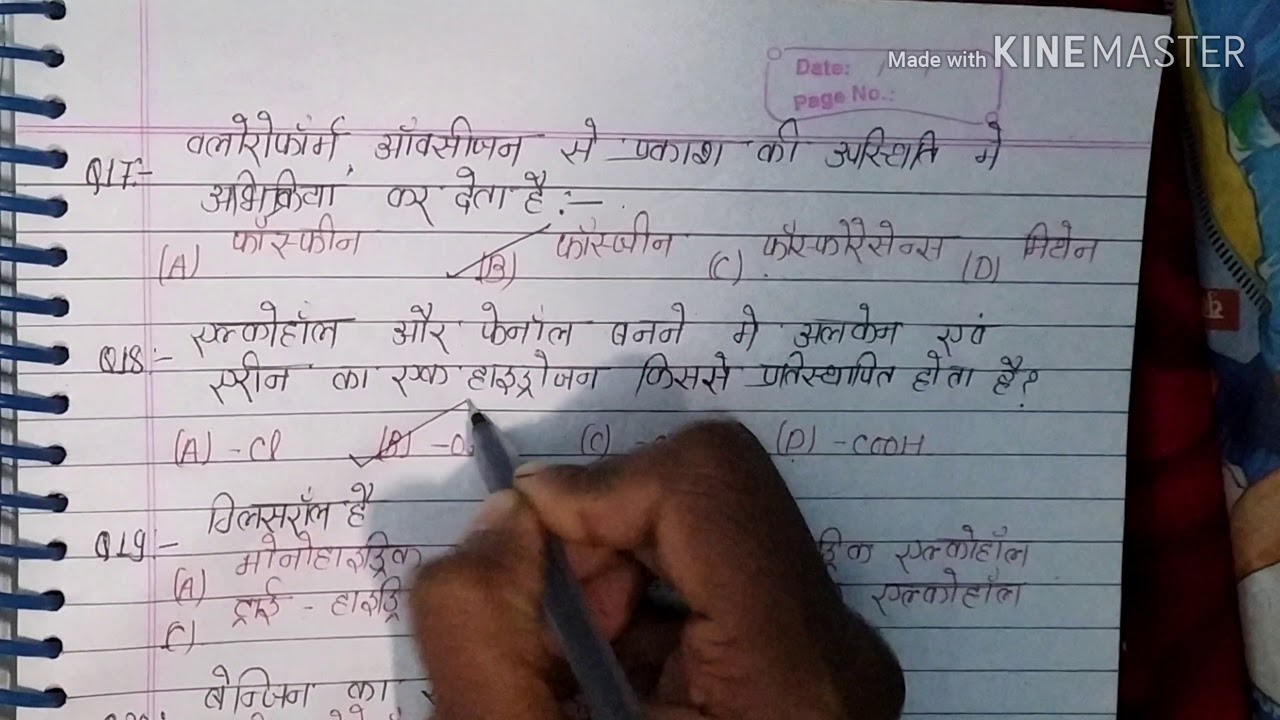 Made with KINEMASTER
Date:
Page No.:
Q17:- क्लोरोफॉर्म, ऑक्सीजन से प्रकाश की उपस्थिति मे
अभिक्रिया कर देता है :-
(A) फॉस्फीन (B) फॉस्जीन (C) फॉस्फोरैसेन्स (D) मिथेन
Q18:- एल्कोहॉल और फेनॉल बनने मे अलकेन एवं
एरीन का एक हाइड्रोजन किससे प्रतिस्थापित होता है?
(A) -Cl (B) (C) (D) -COOH
Q19:- ग्लिसरॉल है
(A) मोनोहाइड्रिक एल्कोहॉल
(C) ट्राई - एल्कोहॉल
बेन्जिन का